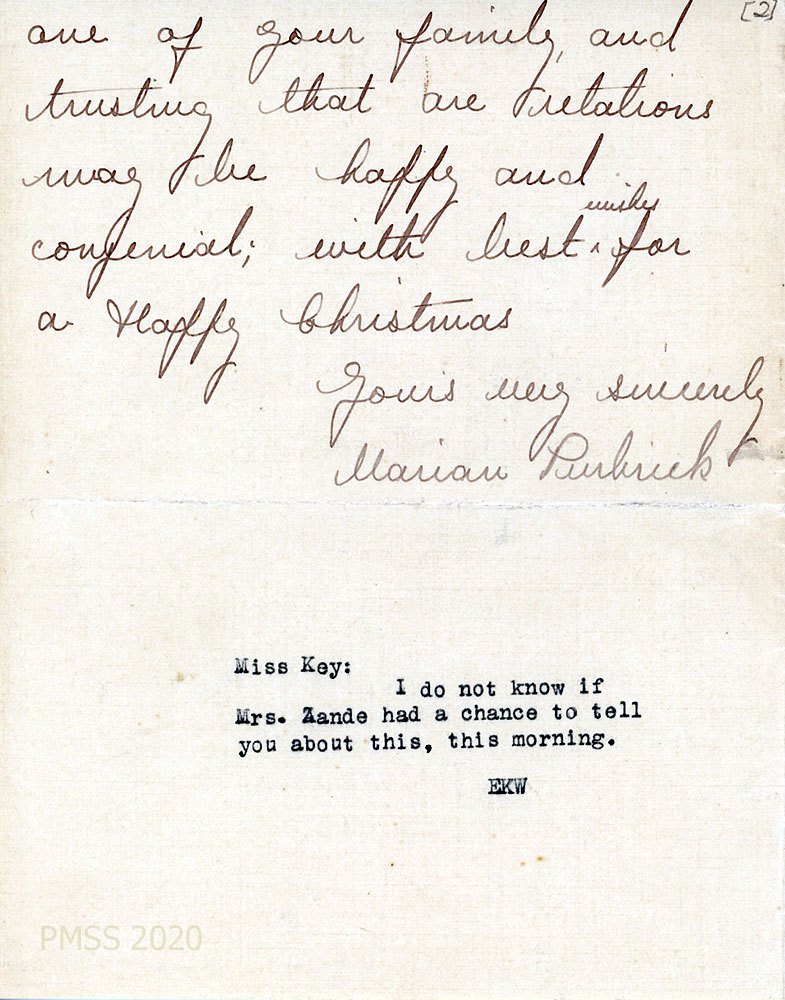 [2]
one of your family, and
trusting that are relations
may be happy and
congenial; with best ^ wishes for
a Happy Christmas
Yours very sincerely
Marian Purbrick
Miss Key:
I do not know if
Mrs. Zande had a chance to tell
you about this, this morning.
EKW
PMSS 2020